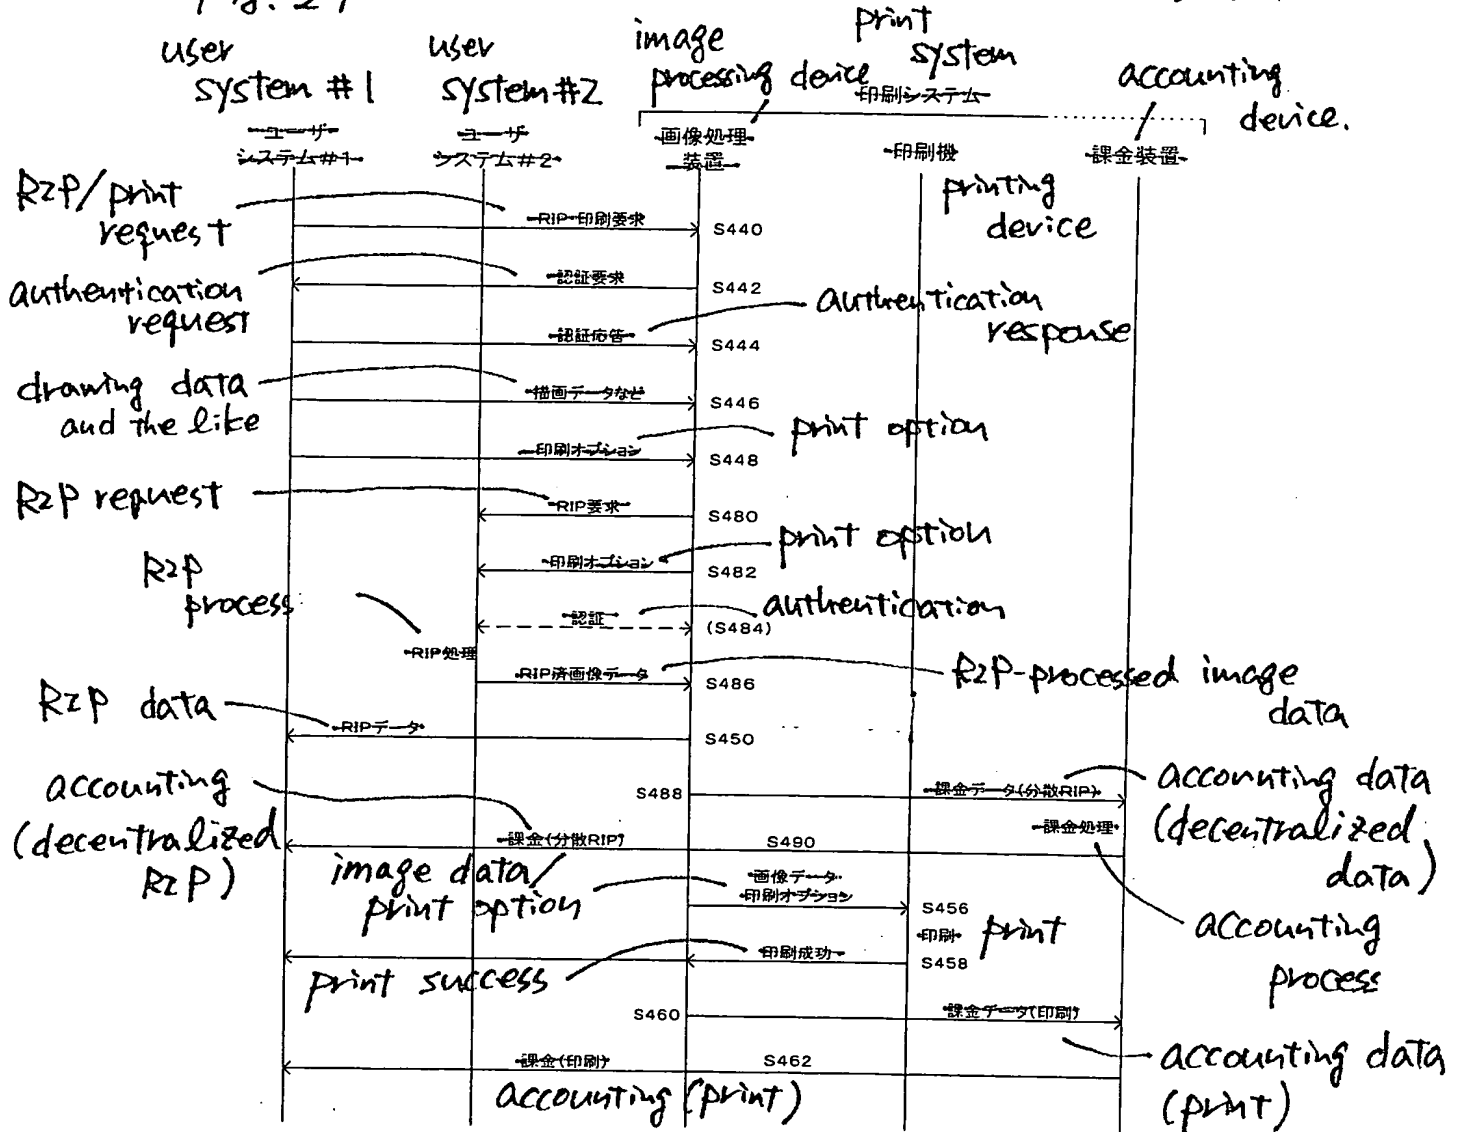 user
system #1
user
system #2
image
processing device
print
system
accounting
device.
印刷システム
ユーザ
システム#1
ユーザ
システム#2
画像処理
装置
印刷機
課金装置
printing
device
RIP/print
request
RIP・印刷要求
S440
authentication
request
認証要求
S442
authentication
response
認証応答
S444
drawing data
and the like
描画データなど
S446
print option
印刷オプション
S448
RIP request
RIP要求
S480
print option
印刷オプション
S482
RIP
process
authentication
認証
(S484)
RIP処理
RIP済画像データ
S486
RIP-processed image
data
RIP data
RIPデータ
S450
accounting
(decentralized
RIP)
S488
課金データ(分散RIP)
accounting data
(decentralized
data)
課金処理
課金(分散RIP)
S490
image data/
print option
画像データ
印刷オプション
S456
印刷
print
accounting
process
印刷成功
S458
print success
S460
課金データ(印刷)
accounting data
(print)
課金(印刷)
S462
accounting (print)